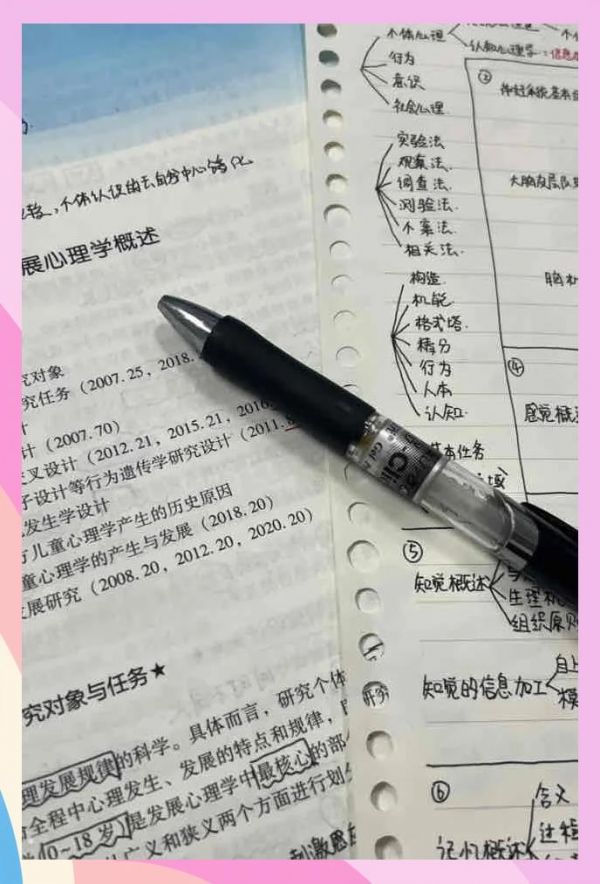 个体认识的去自我中心
展心理学概述
究对象
究任务（2007.25，2018.
计
计（2007.70）
叉设计（2012.21，2015.21，2016.
子设计等行为遗传学研究设计（2011.
发生学设计
方儿童心理学产生的历史原因
童心理学的产生与发展（2018.20）
发展研究（2008.20，2012.20，2020.20）
究对象与任务★
理发展规律的科学。具体而言，研究个体
全程中心理发生、发展的特点和规律，
（0~18岁）是发展心理学中最核心的部
广义和狭义两个方面进行划
刺激
个体心理
认知心理学：信息
行为
意识
社会心理
实验法
观察法.
调查法
测验法.
个案法.
相关法.
构造.
机能.
格式塔.
精分
行为
人本
认知.
基本任务
域
②
神经系统基本
大脑皮层
胸
④
感觉概
⑤
知觉概述
生理机
组织原则
知觉的信息加工
自上
模
研究
⑥
记忆概述
含义
过程
Gel